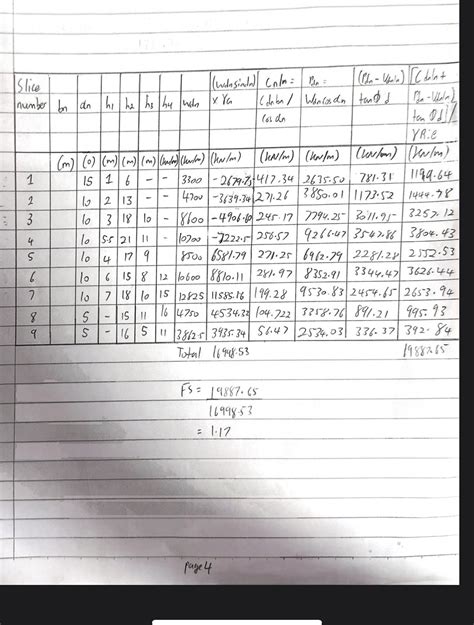 Slice number bn dn h1 h2 h3 h4 wdn (wdn sin dn) x Ya Cnln = Cdnbn / cos dn Pn = wdn cos dn (Pn - Unln) tanΦd [Cdnln + (Pn - Unln) tanΦd] / YR;e
(m) (o) (m) (m) (m) (kn/m) (kn/m) (kn/m) (kn/m) (kn/m) (kn/m)
1 15 1 6 - - 3300 -2679.75 417.34 2635.50 781.31 1199.64
2 10 2 13 - - 4700 -3639.34 271.26 3850.01 1173.52 1444.78
3 10 3 18 10 - 8600 -4906.10 245.17 7794.25 3011.95 3257.12
4 10 5.5 21 11 - 10700 -7222.5 256.57 9266.47 3547.86 3804.43
5 10 4 17 9 8500 6581.79 271.25 6962.79 2281.28 2552.53
6 10 6 15 8 12 10600 8810.11 281.97 8352.91 3344.47 3626.44
7 10 7 18 10 15 12825 11585.16 199.28 9530.83 2454.65 2653.94
8 5 - 15 11 16 4750 4534.32 104.722 3358.76 891.21 995.93
9 5 - 16 5 11 3862.5 3935.34 56.47 2534.03 336.37 392.84
Total 16998.53 19887.65
FS = 19887.65
16998.53
= 1.17
page 4